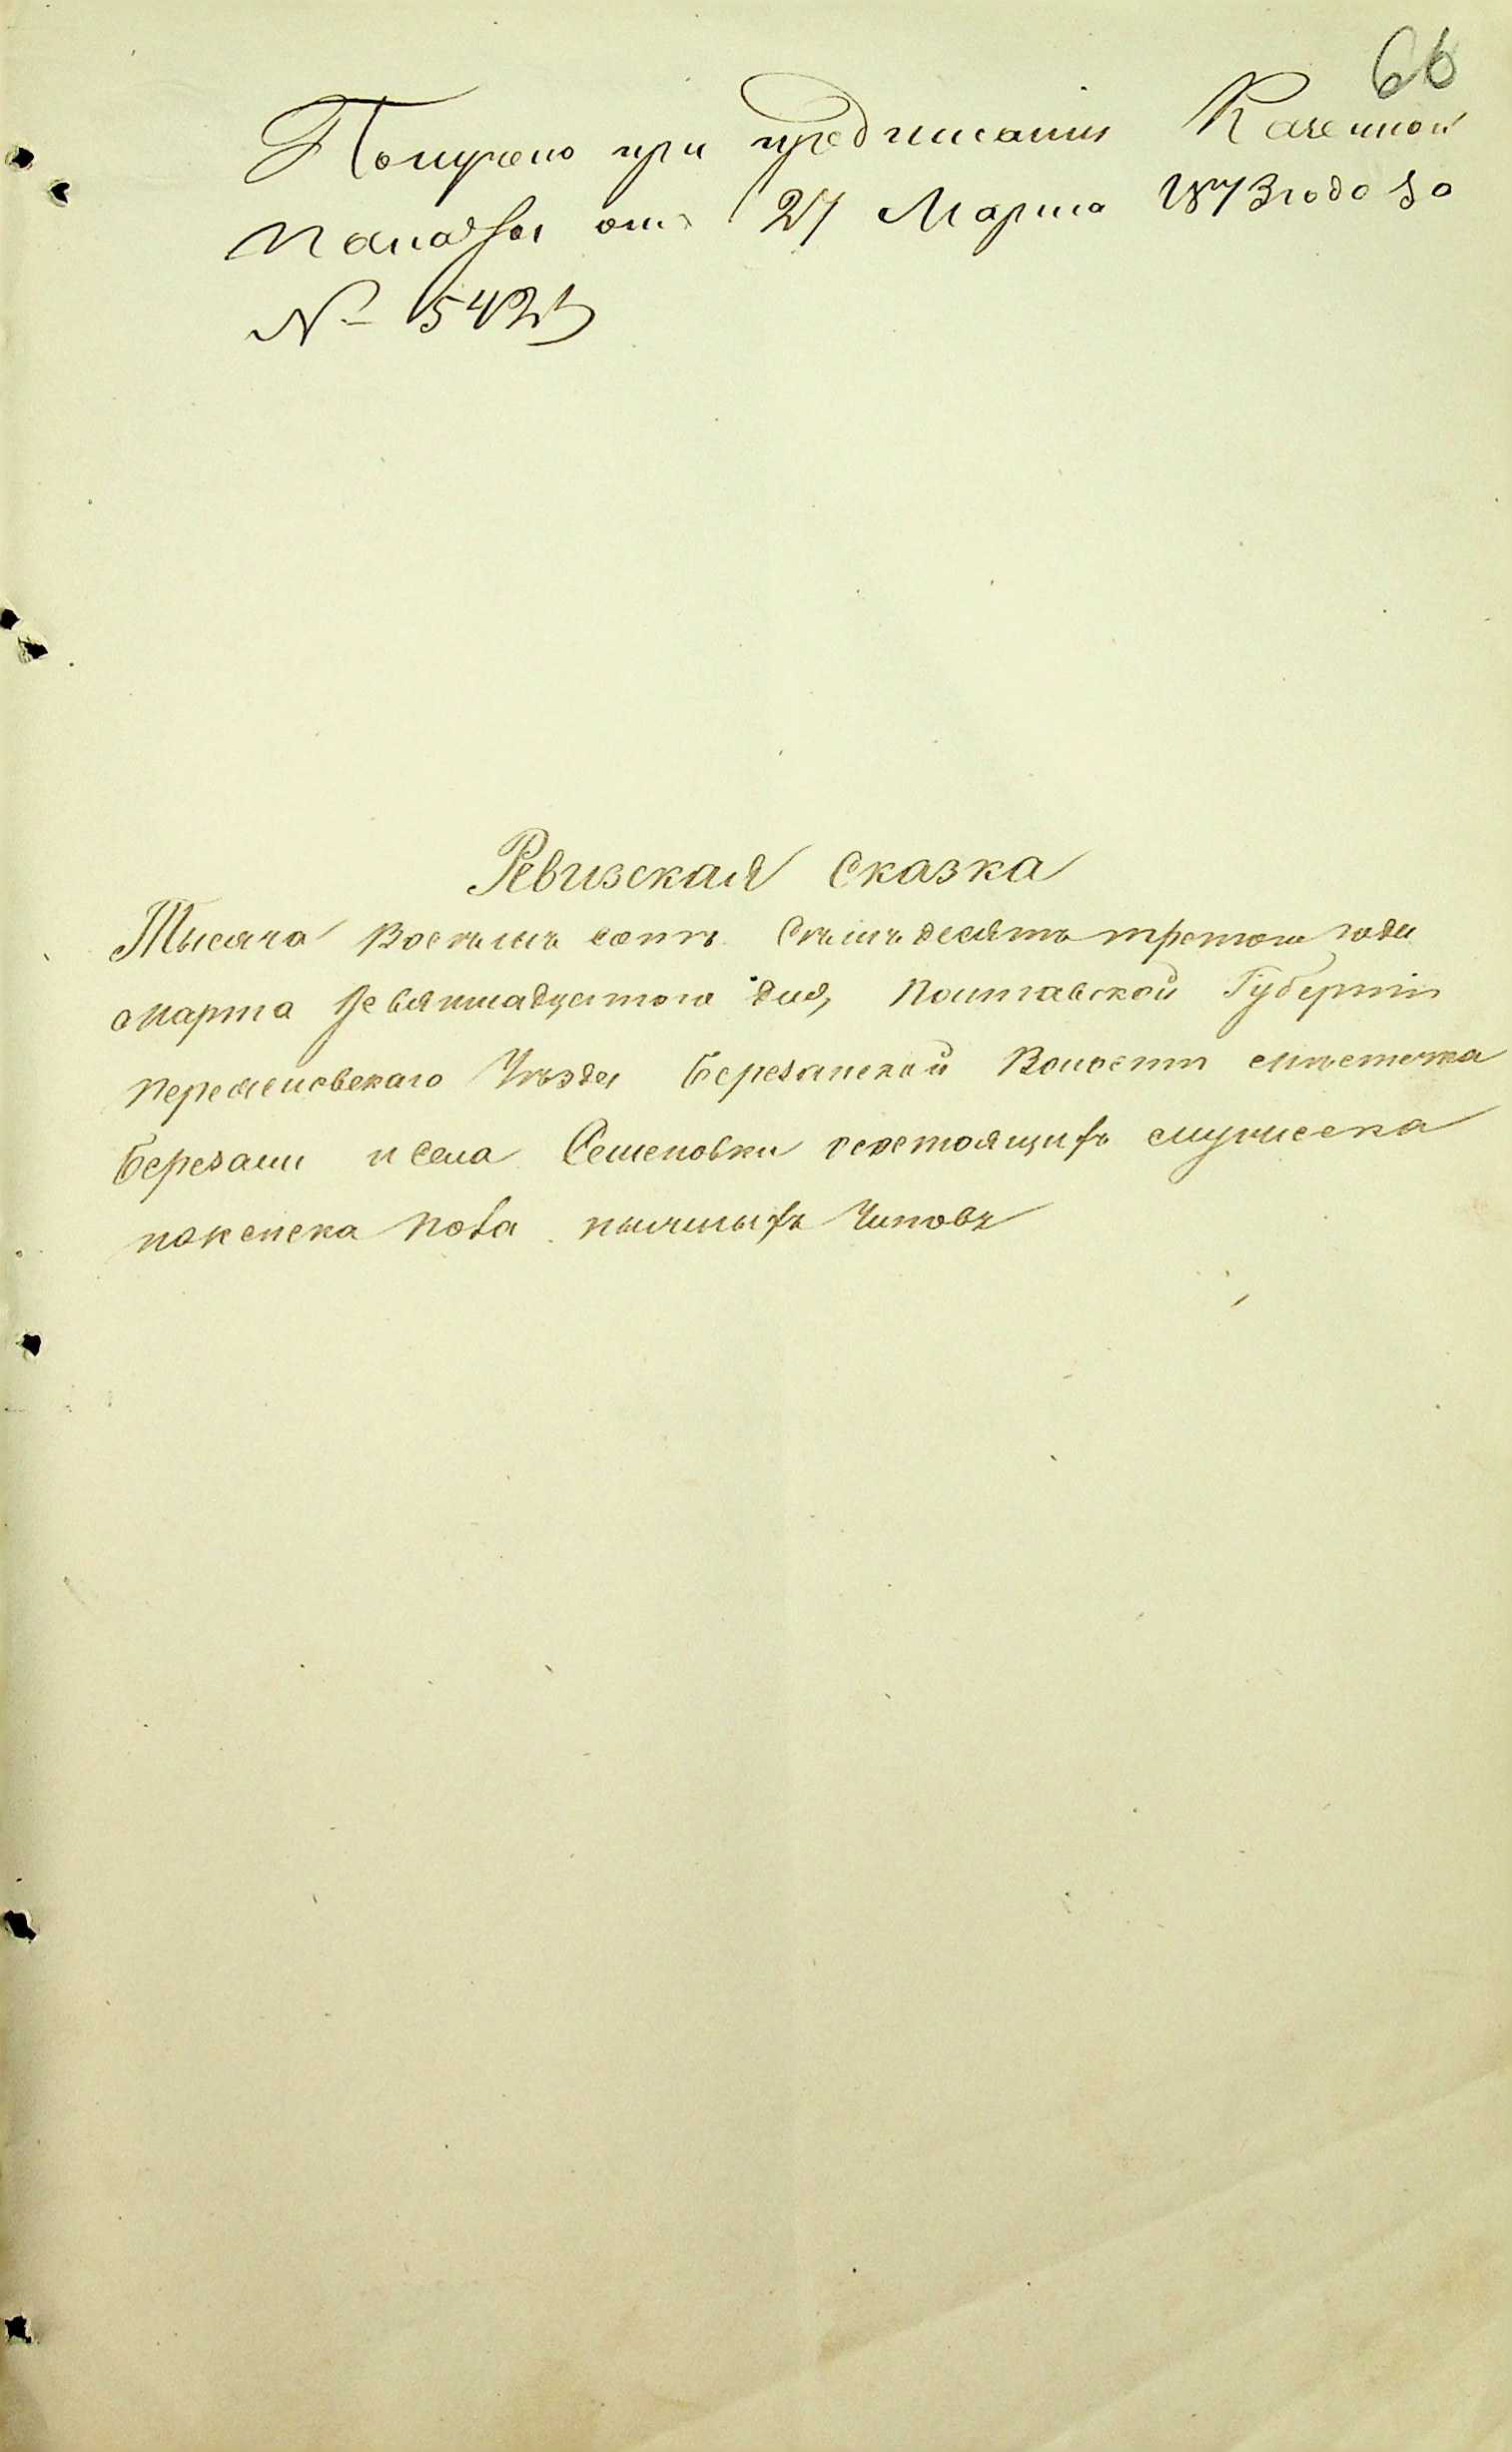 66
Получено при предписаніи Казенной
Палаты отъ 27 Марта 1873 года за
№ 5425
Ревизская Сказка
Тысяча Восѣмъ сотъ Сѣмъдесятъ третого года
Марта Девятнадцятого дня, Полтавской Губерніи
Переяславскаго Уѣзда Березанской Волости мѣстечка
Березани и села Семеновки состоящихъ
женска пола нычшыхъ Чиновъ